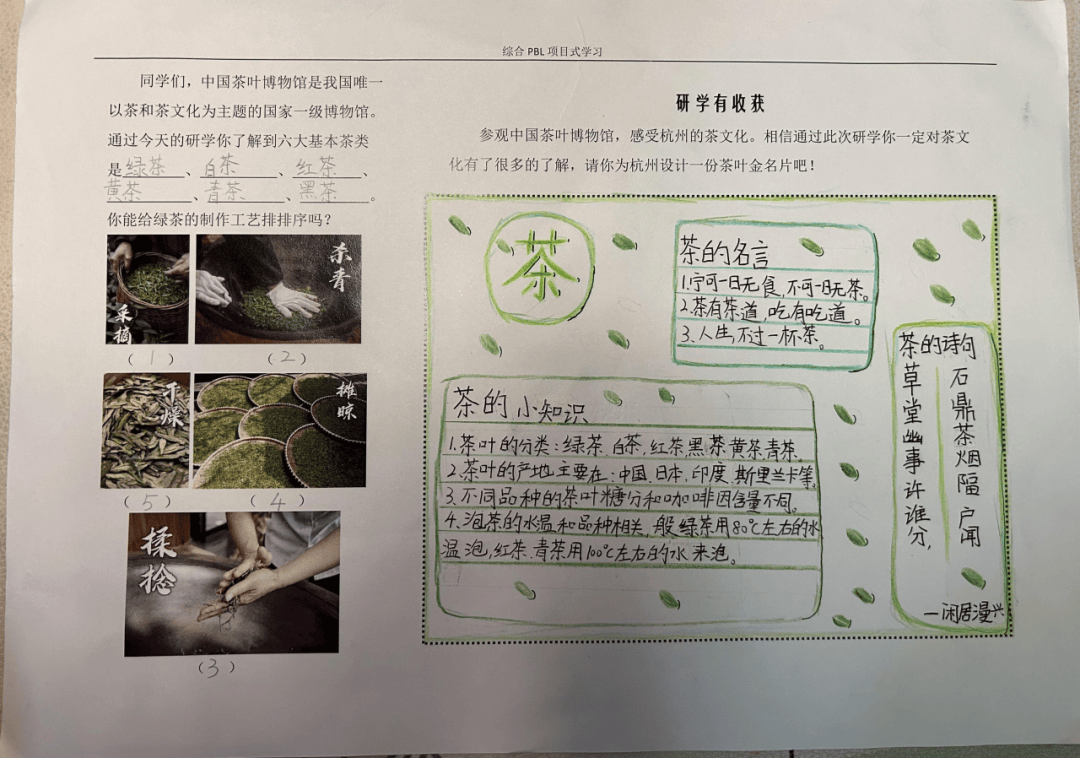 综合 PBL 项目式学习
同学们，中国茶叶博物馆是我国唯一
以茶和茶文化为主题的国家一级博物馆。
通过今天的研学你了解到六大基本茶类
是绿茶、白茶、红茶、
黄茶、青茶、黑茶。
你能给绿茶的制作工艺排排序吗？
采摘
杀青
（1）
（2）
干燥
摊晾
（5）
（4）
揉捻
（3）
研学有收获
参观中国茶叶博物馆，感受杭州的茶文化。相信通过此次研学你一定对茶文
化有了很多的了解，请你为杭州设计一份茶叶金名片吧！
茶
茶的名言
1.宁可一日无食，不可一日无茶。
2.茶有茶道，吃有吃道。
3.人生，不过一杯茶。
茶的小知识
1.茶叶的分类：绿茶、白茶、红茶、黑茶、黄茶、青茶。
2.茶叶的产地主要在：中国、日本、印度、斯里兰卡等。
3.不同品种的茶叶糖分和咖啡因含量不同。
4.泡茶的水温和品种相关，一般绿茶用80℃左右的水
温泡，红茶、青茶用100℃左右的水来泡。
茶的诗句
石鼎茶烟隔户闻
草堂幽事许谁分，
—闲居漫兴